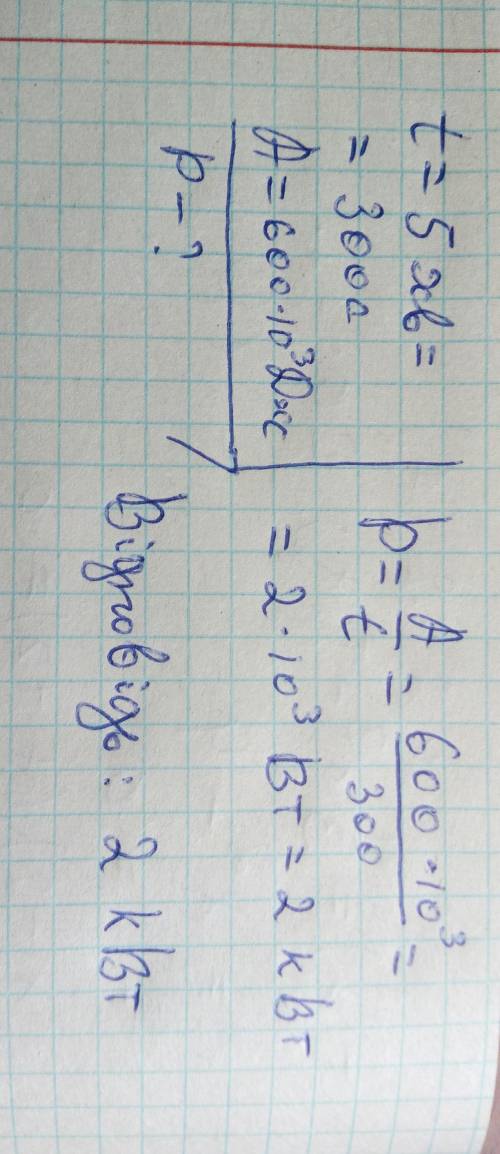 t = 5 хв =
= 300 с
A = 600 · 10³ Дж
p - ?
p = A/t = 600 · 10³/300 =
= 2 · 10³ Вт = 2 кВт
Відповідь: 2 кВт